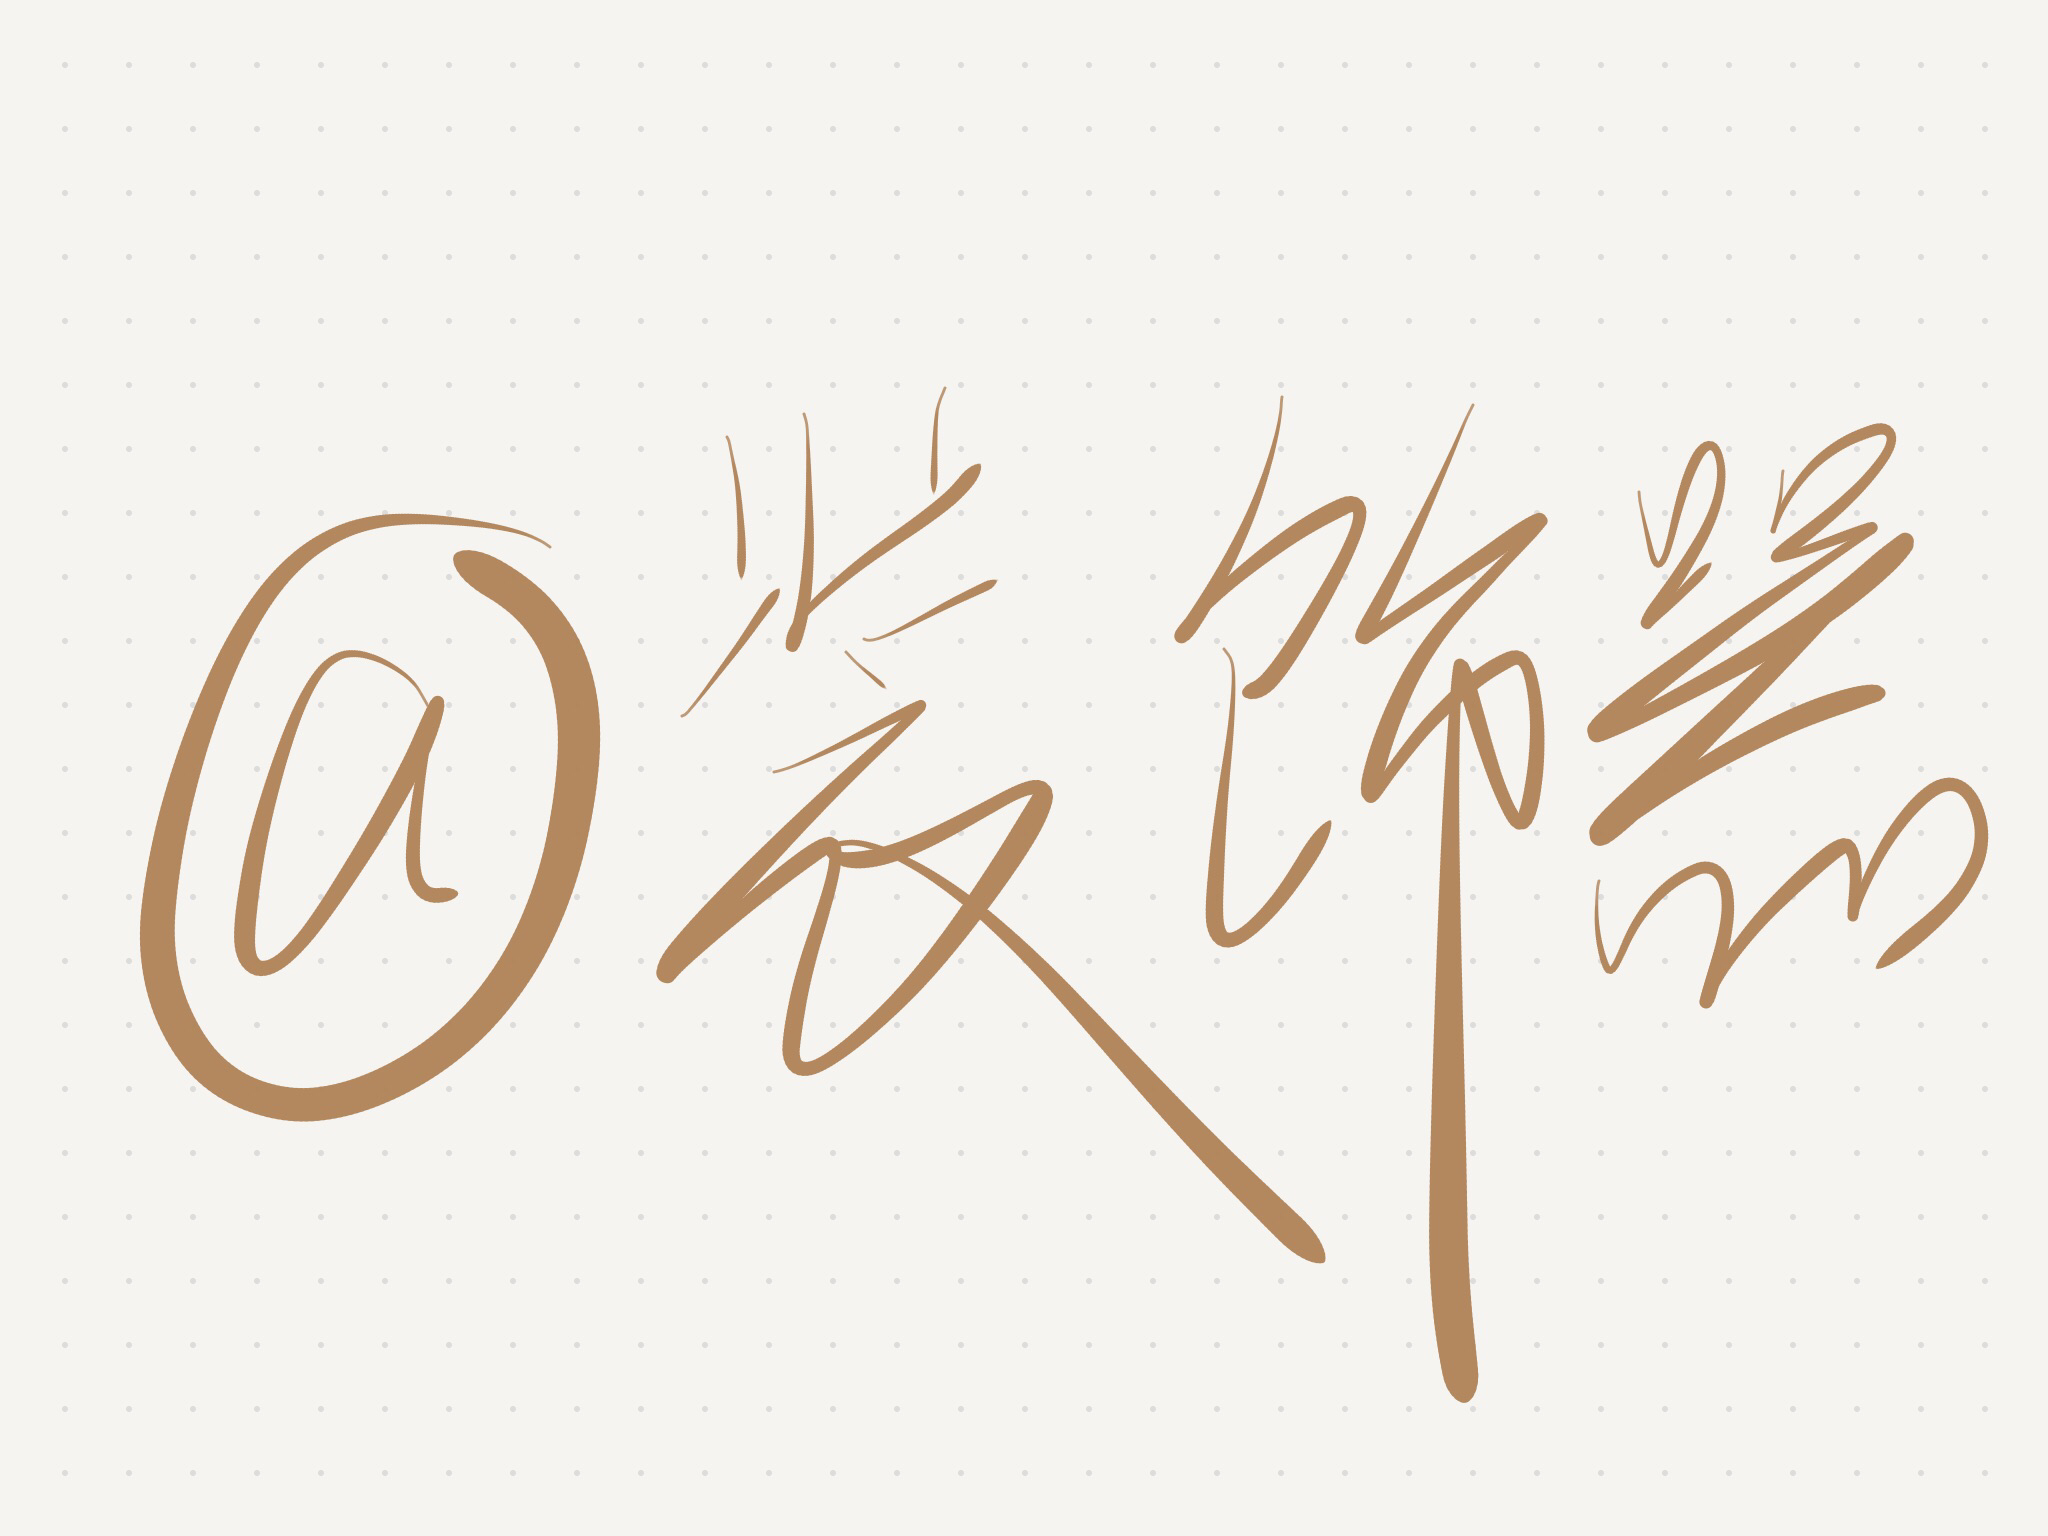 @装饰器